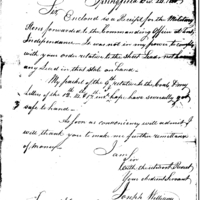 Sir Enclosed is a Receipt for the Military
Stores forwarded to the Commanding Officer at Fort
Independence. It was not in my power to comply
with your order relative to the Sheet Lead not having
any Lead in that state on hand—
My packet of the 9th relative to the
Letters of the 12th & 15th inst. hope have severally got
safe to hand—
As soon as conveniency will admit I
will thank you to make me a further remittance
of money.
I am
Sir
With the utmost Respect
Your obedient Servant
Joseph Williams